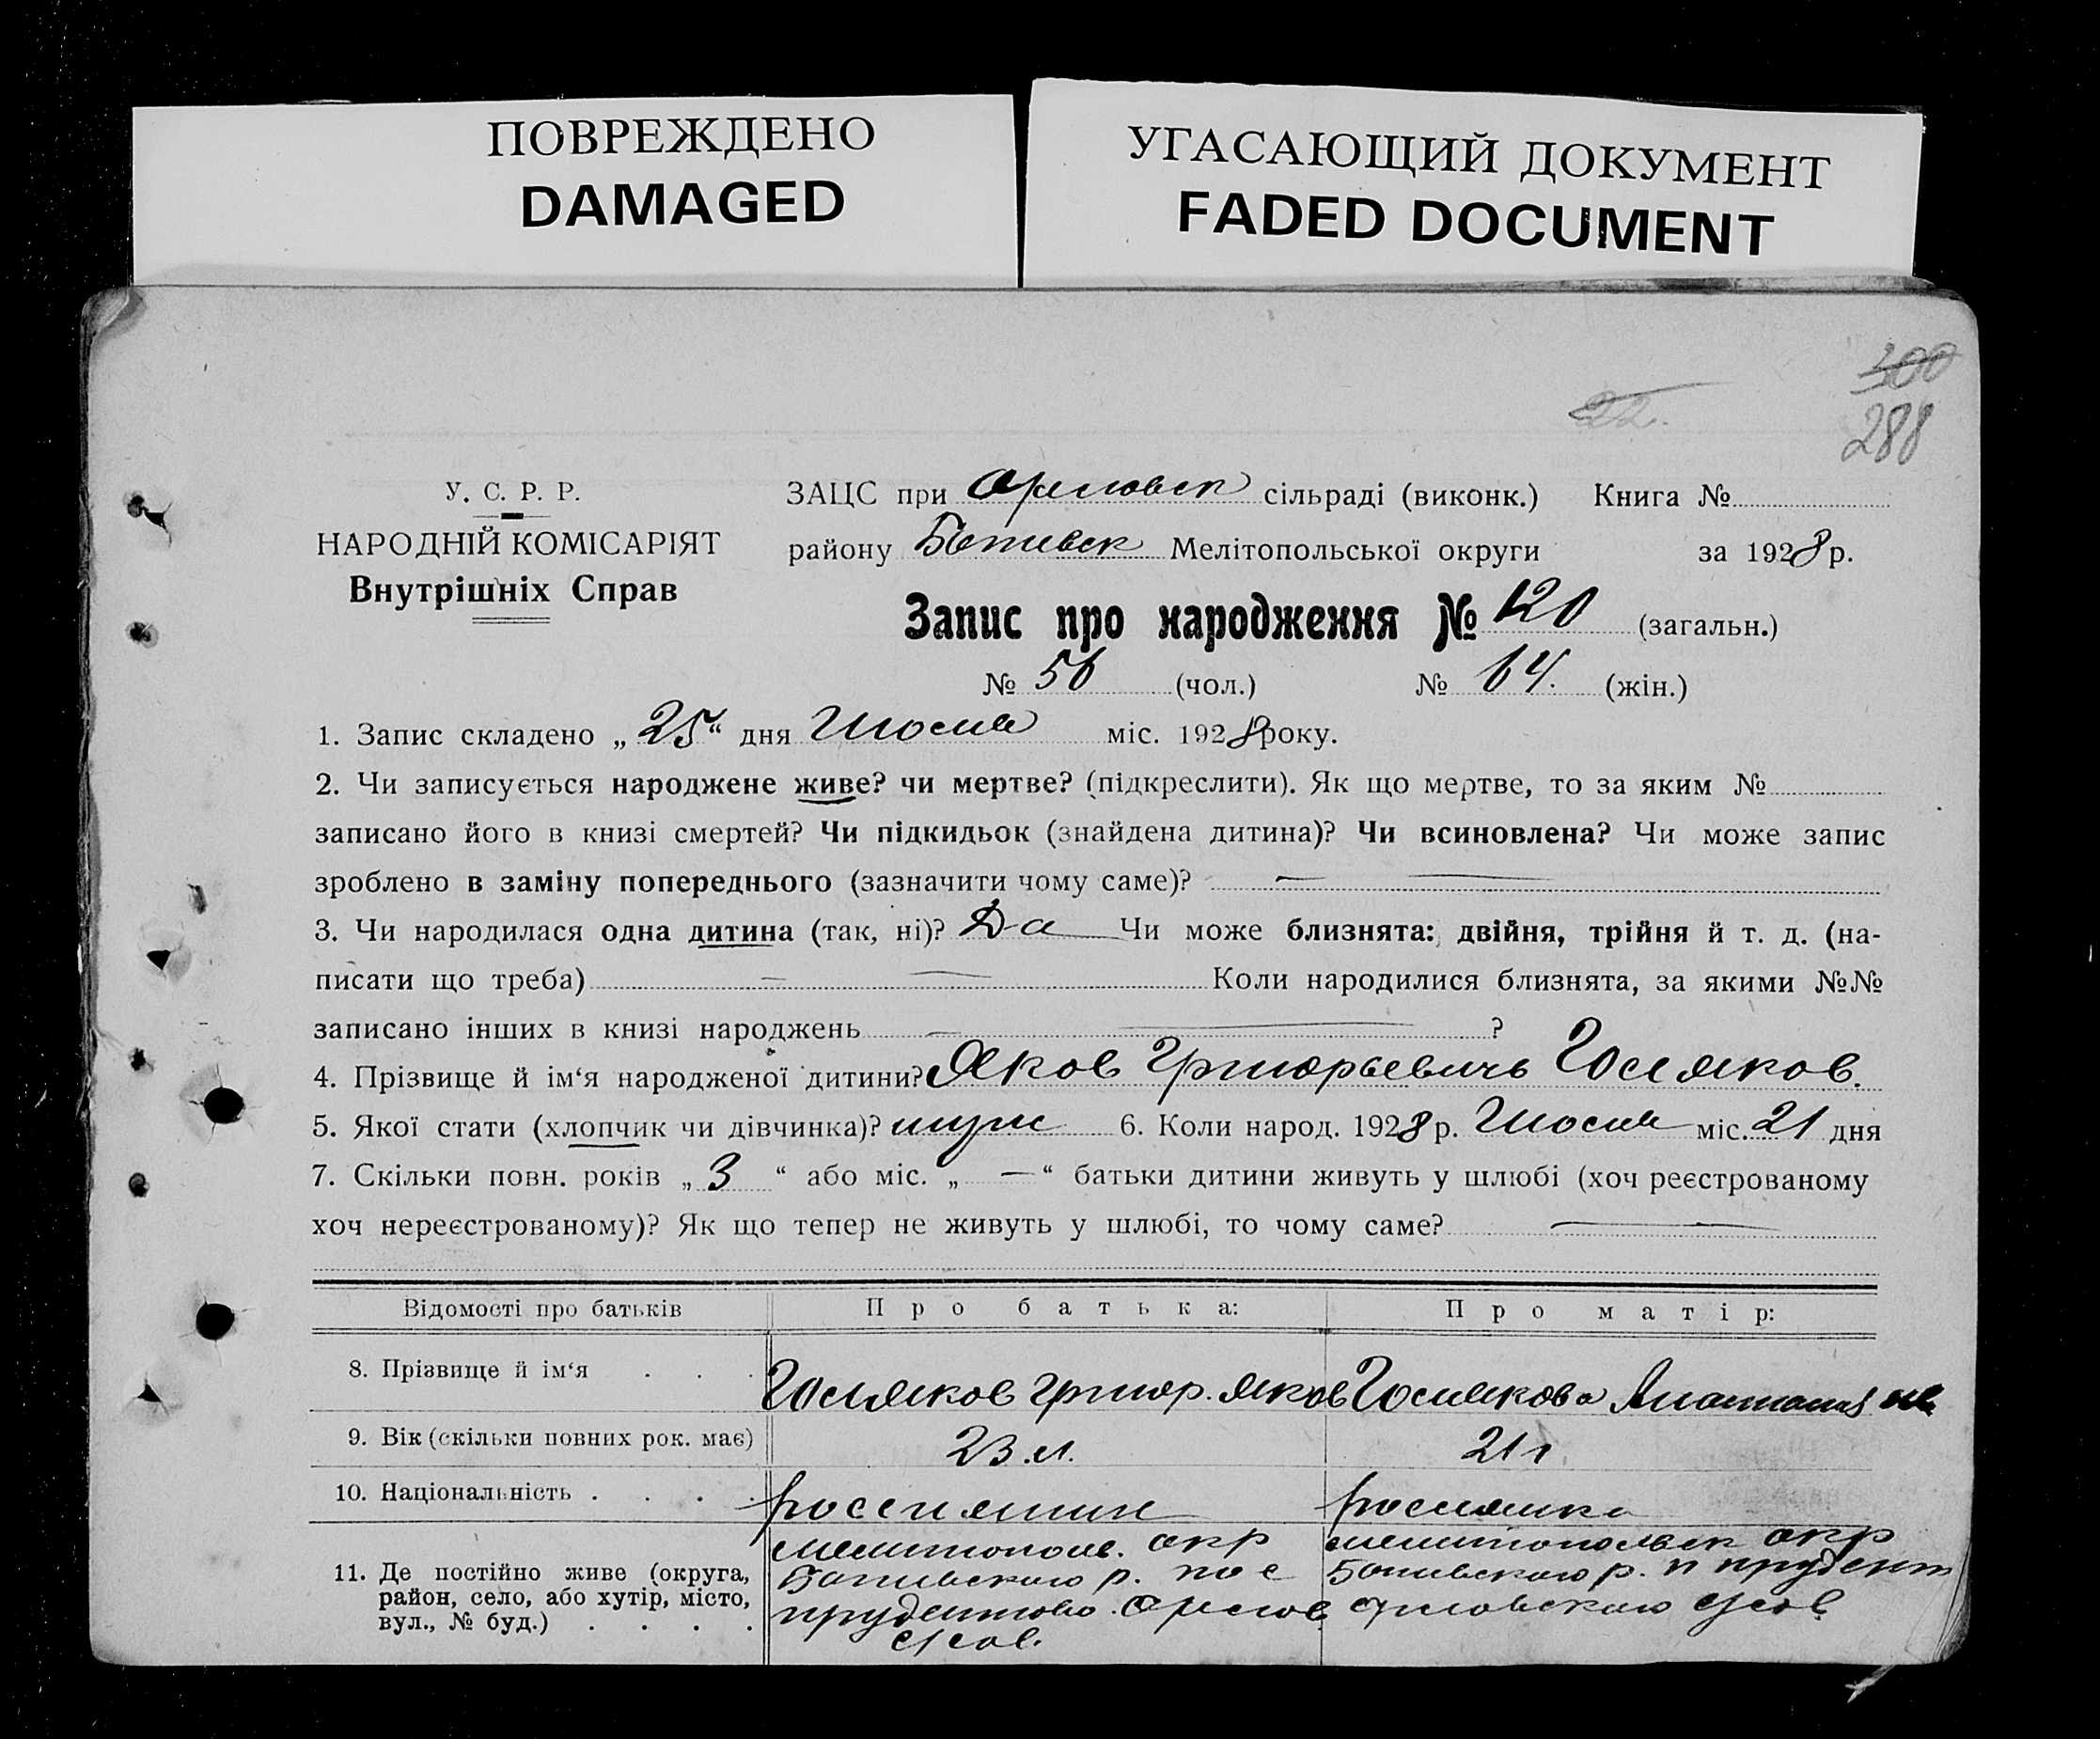 ПОВРЕЖДЕНО
DAMAGED
УГАСАЮЩИЙ ДОКУМЕНТ
FADED DOCUMENT
300
22.
288
У. С. Р. Р.
НАРОДНІЙ КОМІСАРІЯТ
Внутрішніх Справ
ЗАЦС при Орловск сільраді (виконк.) Книга №
району Ботиевск Мелітопольської округи за 1928 р.
Запис про народження № 120 (загальн.)
№ 56 (чол.) № 64. (жін.)
1. Запис складено „ 25 “ дня Июля міс. 1928 року.
2. Чи записується народжене живе? чи мертве? (підкреслити). Як що мертве, то за яким №
записано його в книзі смертей? Чи підкидьок (знайдена дитина)? Чи всиновлена? Чи може запис
зроблено в заміну попереднього (зазначити чому саме)? —
3. Чи народилася одна дитина (так, ні)? Да Чи може близнята: двійня, трійня й т. д. (на-
писати що треба) — Коли народилися близнята, за якими №№
записано інших в книзі народжень — ?
4. Прізвище й ім‘я народженої дитини? Яков Григорьевичь
5. Якої стати (хлопчик чи дівчинка)? муж 6. Коли народ. 1928 р. Июля міс. 21 дня
7. Скільки повн. років „ 3 “ або міс. „ — “ батьки дитини живуть у шлюбі (хоч реєстрованому
хоч нереєстрованому)? Як що тепер не живуть у шлюбі, то чому саме? —
Відомості про батьків Про батька: Про матір:
8. Прізвище й ім‘я . . . Григор. Яков
9. Вік (скільки повних рок. має) 23 л. 21 г
10. Національність . . . . россиянин россиянка
11. Де постійно живе (округа, район, село, або хутір, місто, вул., № буд.) . . . .
Мелитопол. окр
Ботиевского р. пос
Орлов
сов.
Мелитопольск окр
Ботиевского р. п
Орловского